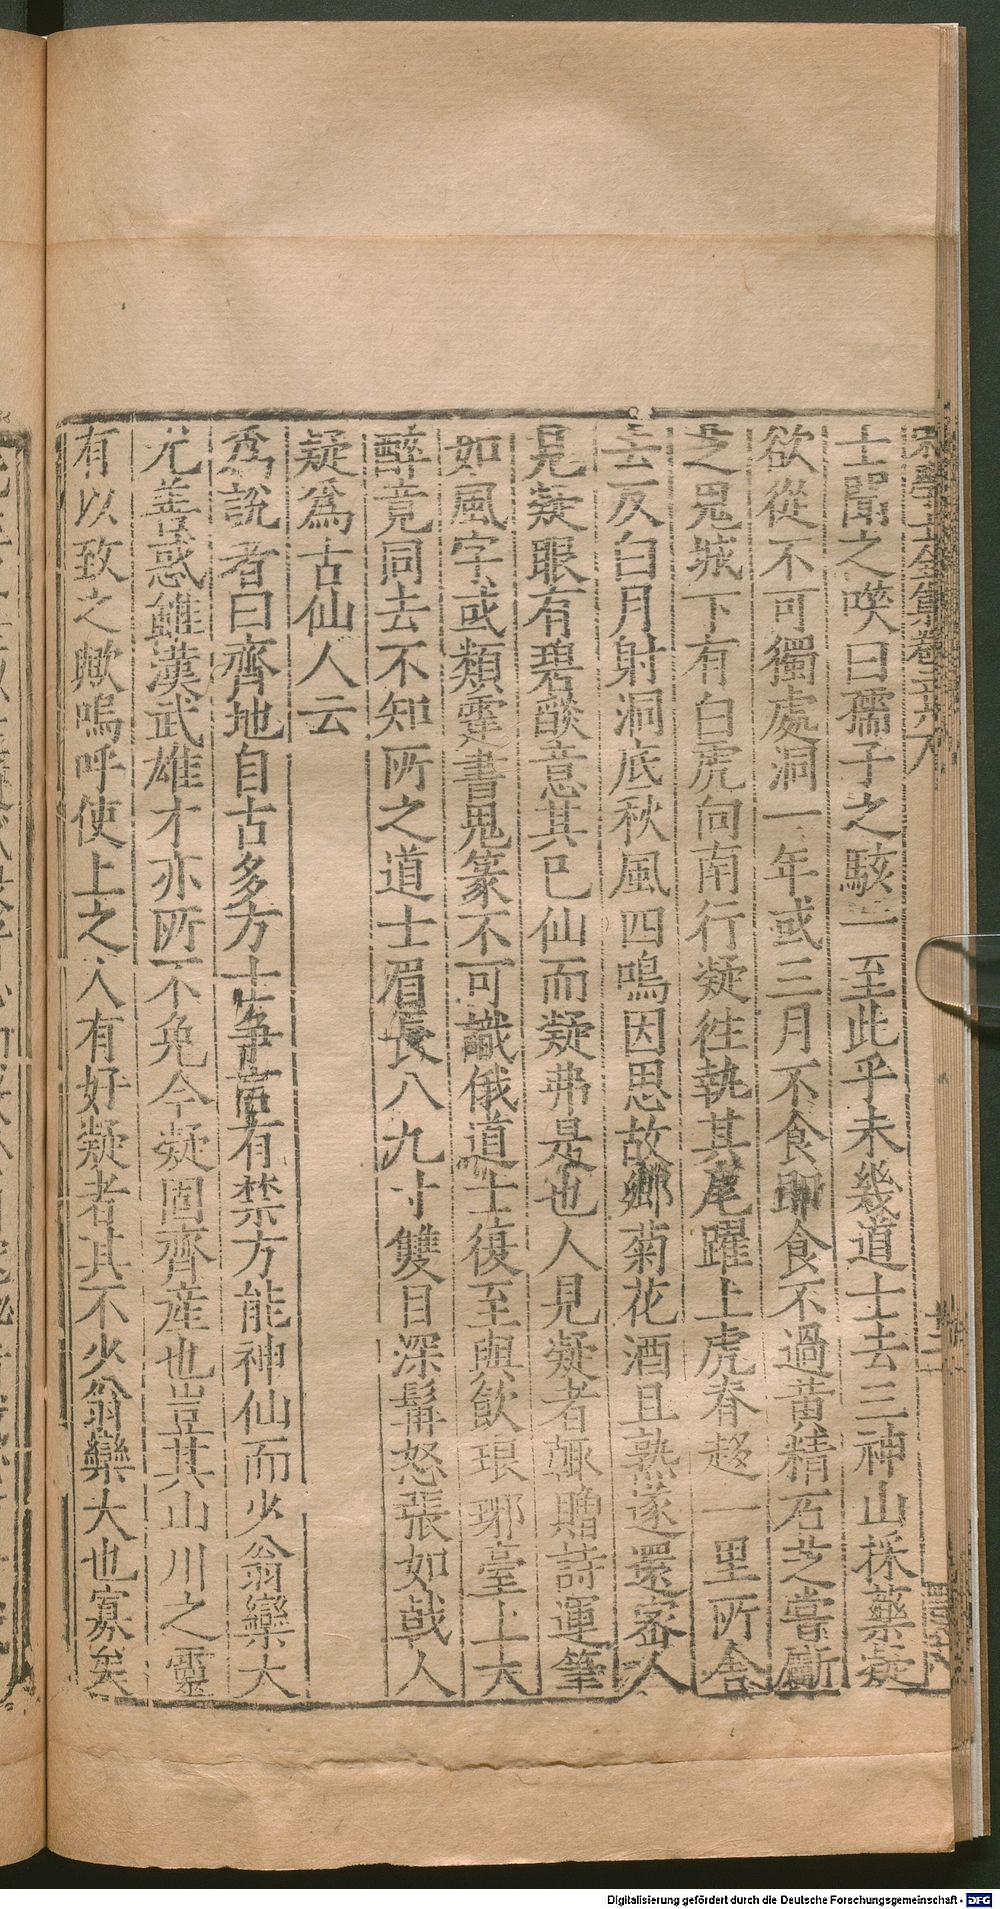 宋學士全集卷三十八
士聞之嘆曰孺子之駭一至此乎未幾道士去三神山採藥凝
欲從不可獨處洞一年或三月不食即食不過黃精石芝嘗斸
芝鬼城下有白虎向南行凝徃執其尾躍上虎脊趍一里所舍
去反白月射洞底秋風四鳴因思故鄉菊花酒且熟遂還密人
見凝眼有碧燄意其已仙而凝弗是也人見凝者輒贈詩運筆
如風字或類霻書鬼篆不可識俄道士復至與飲琅琊臺上大
醉竟同去不知所之道士眉長八九寸雙目深髯怒張如戟人
疑爲古仙人云
爲說者曰齊地自古多方士爭言有禁方能神仙而少翁欒大
尤善惑雖漢武雄才亦所不免今凝固齊産也豈其山川之靈
有以致之歟嗚呼使上之人有好凝者其不少翁欒大也寡矣
Digitalisierung gefördert durch die Deutsche Forschungsgemeinschaft - DFG